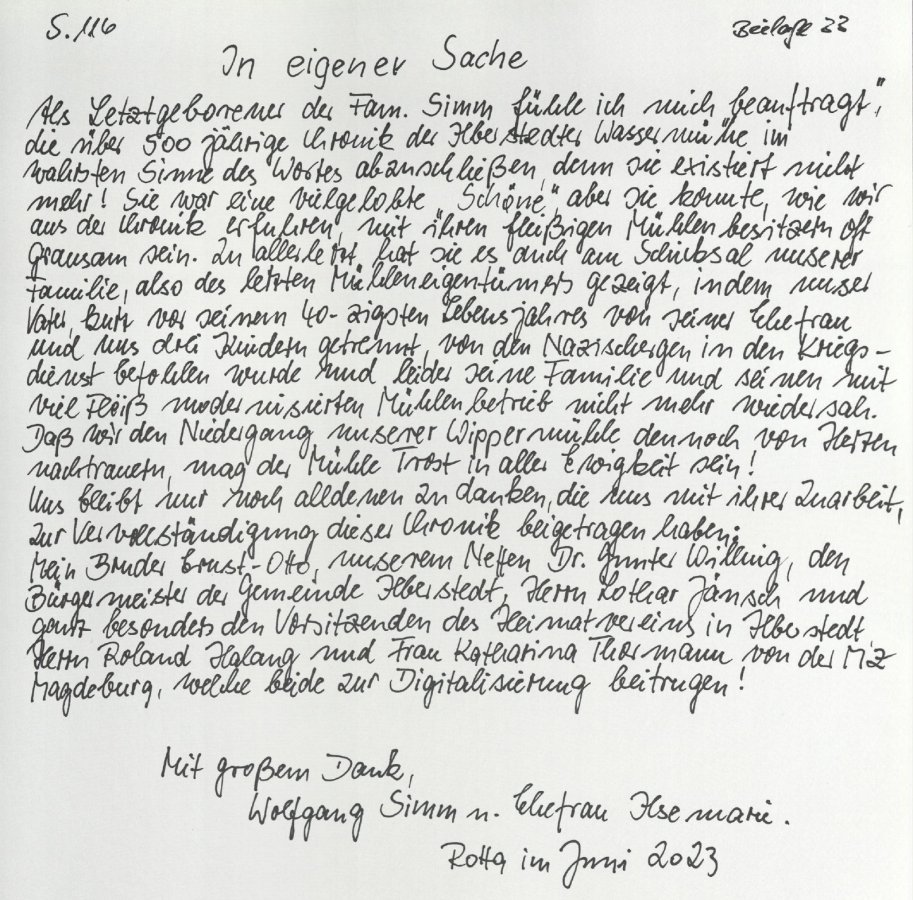 S. 116
Beilage 22
In eigener Sache
Als Letztgeborener der Fam. Simm fühle ich mich beauftragt",
die über 500 jährige Chronik der Ilberstedter Wassermühle im
wahrsten Sinne des Wortes abzuschließen, denn sie existiert nicht
mehr! Sie war eine vielgelobte „Schöne", aber sie konnte, wie wir
aus der Chronik erfuhren, mit ihren fleißigen Mühlenbesitzern oft
grausam sein. Zu allerletzt hat sie es auch am Schicksal unserer
Familie, also des letzten Mühleneigentümers gezeigt, indem unser
Vater, kurz vor seinem 40-zigsten Lebensjahres von seiner Ehefrau
und uns drei Kindern getrennt, von den Nazischergen in den Kriegs-
dienst befohlen wurde und leider seine Familie und seinen mit
viel Fleiß modernisierten Mühlenbetrieb nicht mehr wiedersah.
Daß wir den Niedergang unserer Wippermühle dennoch von Herzen
nachtrauern, mag der Mühle Trost in aller Ewigkeit sein!
Uns bleibt nur noch alldenen zu danken, die uns mit ihrer Zuarbeit,
zur Vervollständigung dieser Chronik beigetragen haben:
Mein Bruder Ernst-Otto, unserem Neffen Dr. Gunter Willing, den
Bürgermeister der Gemeinde Ilberstedt, Herrn Lothar Jänsch und
ganz besonders den Vorsitzenden des Heimatvereins in Ilberstedt
Herrn Roland Halang und Frau Katharina Thormann von der MZ
Magdeburg, welche beide zur Digitalisierung beitrugen!
Mit großem Dank,
Wolfgang Simm u. Ehefrau Ilsemarie.
Rotta im Juni 2023